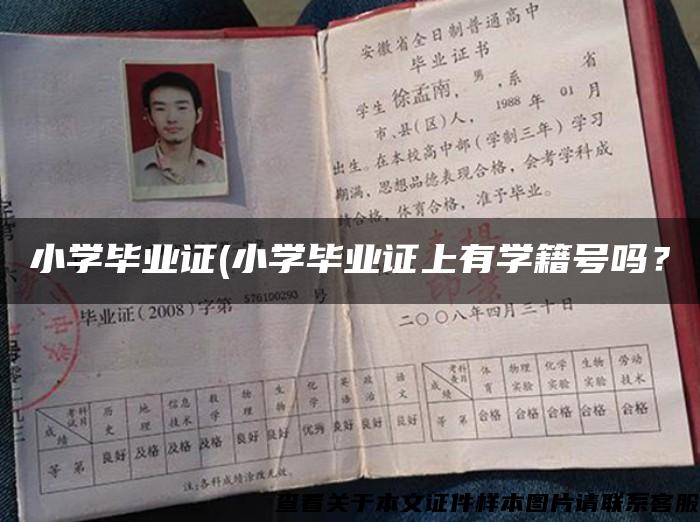 安徽省全日制普通高中
毕业证书
学生 徐孟南，男，系 省
市、县(区)人，1988 年 01 月
出生。在本校高中部（学制三年）学习
期满，思想品德表现合格，会考学科成
绩合格，体育合格，准予毕业。
小学毕业证(小学毕业证上有学籍号吗？
毕业证(2008)字第 576100293 号
二〇〇八年四月三十日
考试科目 历史 地理 信息技术 数学 物理 生物 化学 英语 政治 语文
成绩
等第 良好 及格 及格 及格 良好 良好 优秀 良好 良好 良好
注:各科成绩涂改无效。
考科查目 体育 物理实验 化学实验 生物实验 劳动技术
成绩
等第 合格 合格 合格 合格 合格
查看关于本文证件样本图片请联系客服